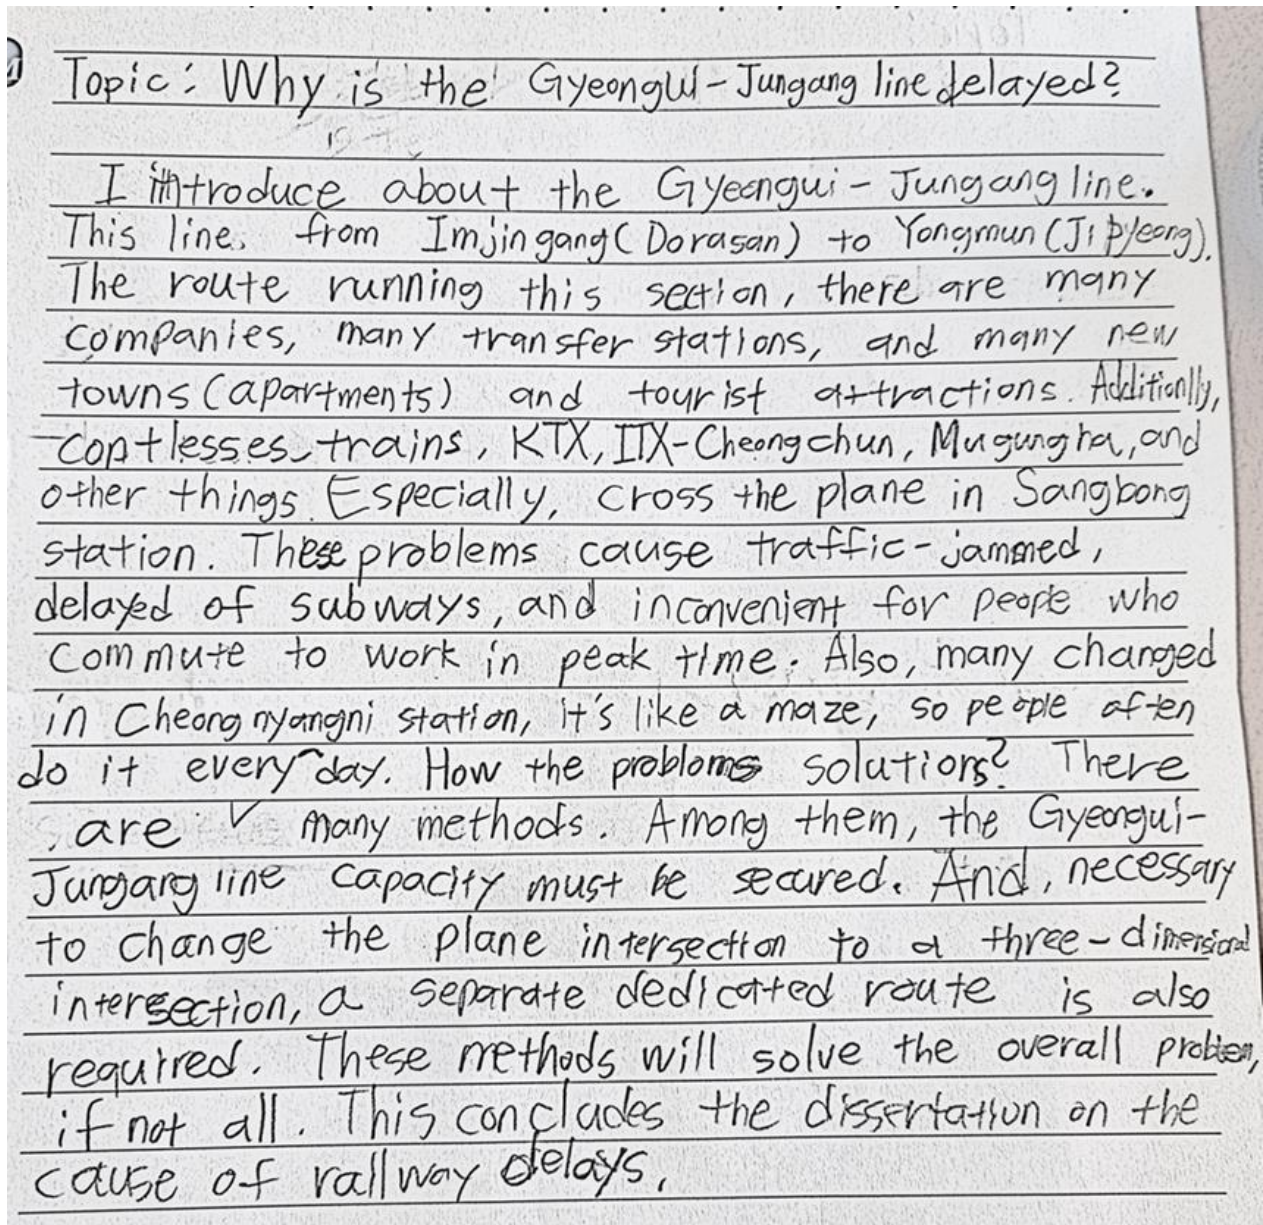 Topic: Why is the Gyeongui-Jungang line delayed?
I introduce about the Gyeongui-Jungang line.
This line. from Imjingang(Dorasan) to Yongmun(Jipyeong).
The route running this section, there are many
companies, many transfer stations, and many new
towns(apartments) and tourist attractions. Additionlly,
contlesses trains, KTX, ITX-Cheongchun, Mugungha, and
other things. Especially, cross the plane in Sangbong
station. These problems cause traffic-jammed,
delayed of subways, and inconvenient for people who
commute to work in peak time. Also, many changed
in Cheongnyangni station, it's like a maze, so people often
do it every day. How the problems solutions? There
are many methods. Among them, the Gyeongui-
Jungang line capacity must be secured. And, necessary
to change the plane intersection to a three-dimensional
intersection, a separate dedicated route is also
required. These methods will solve the overall problem,
if not all. This concludes the dissertation on the
cause of railway delays.